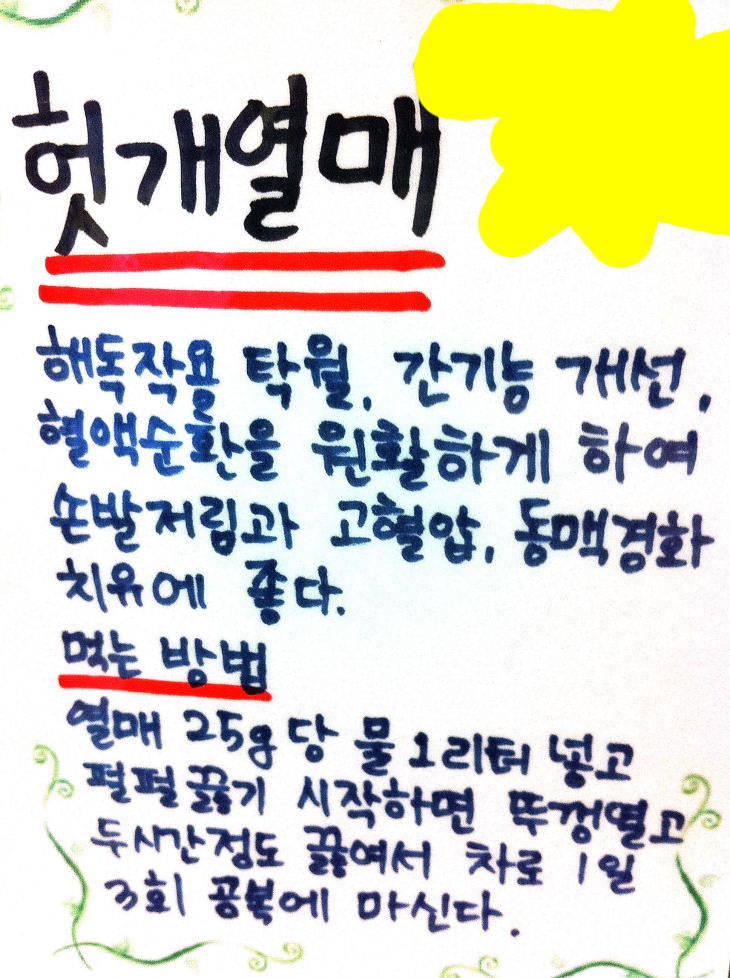 헛개열매
해독작용 탁월, 간기능 개선,
혈액순환을 원활하게 하여
손발저림과 고혈압, 동맥경화
치유에 좋다.
먹는 방법
열매 25g당 물 1리터 넣고
펄펄끓기 시작하면 뚜껑열고
두시간정도 끓여서 차로 1일
3회 공복에 마신다.